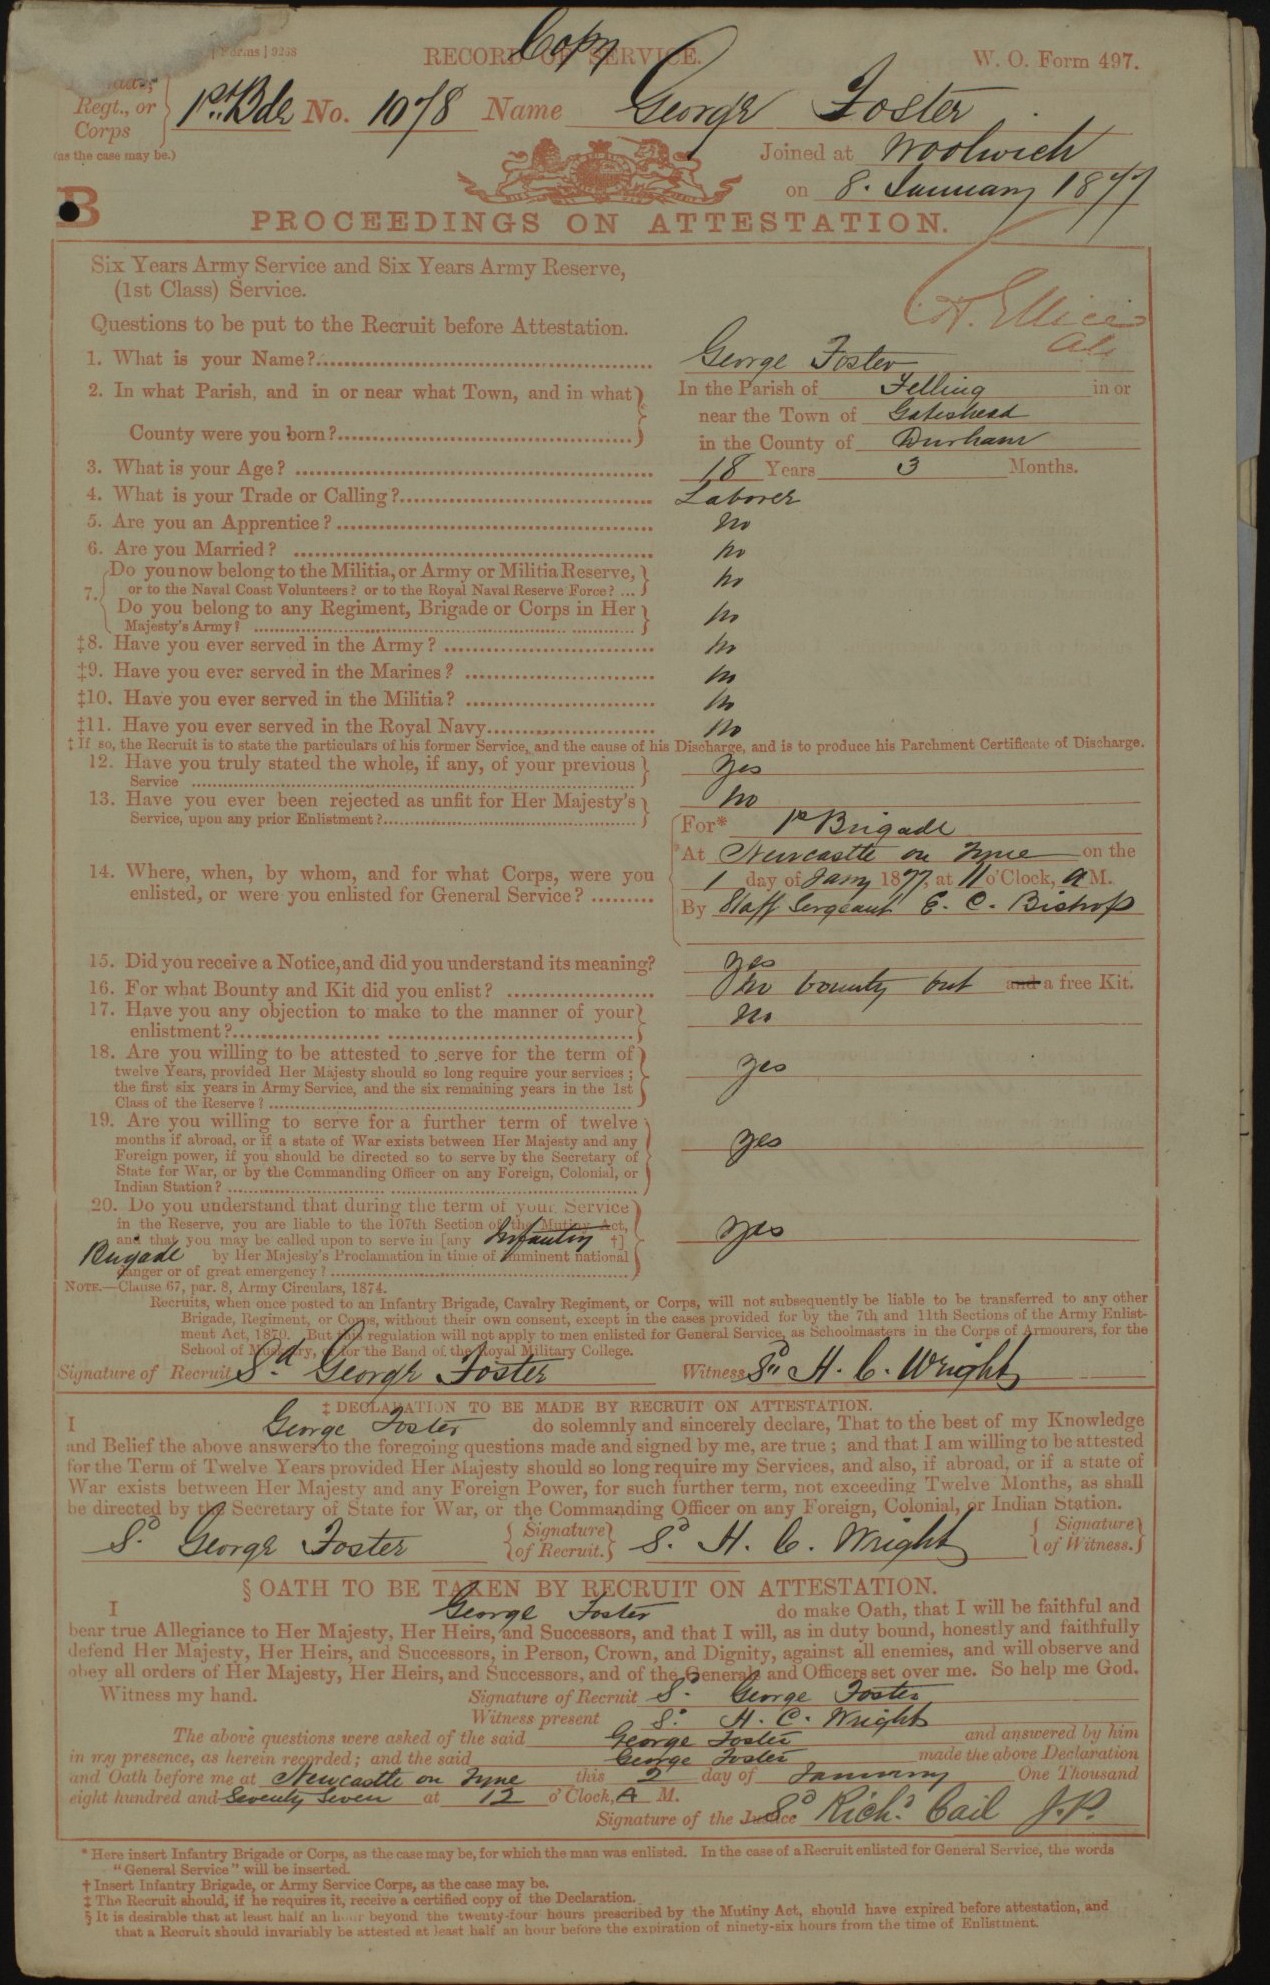 Forms ] 9268
RECORD OF SERVICE.
Copy
W. O. Form 497.
Regt., or
Corps
(as the case may be.)
1st Bde No. 1078 Name George Foster
Joined at Woolwich
on 8. January 1877
B
PROCEEDINGS ON ATTESTATION.
Six Years Army Service and Six Years Army Reserve,
(1st Class) Service.
Questions to be put to the Recruit before Attestation.
1. What is your Name? George Foster
2. In what Parish, and in or near what Town, and in what
County were you born?
In the Parish of Felling in or
near the Town of Gateshead
in the County of Durham
3. What is your Age? 18 Years 3 Months.
4. What is your Trade or Calling? Laborer
5. Are you an Apprentice? No
6. Are you Married? No
7. Do you now belong to the Militia, or Army or Militia Reserve,
or to the Naval Coast Volunteers? or to the Royal Naval Reserve Force? ... No
Do you belong to any Regiment, Brigade or Corps in Her
Majesty's Army? No
‡8. Have you ever served in the Army? No
‡9. Have you ever served in the Marines? No
‡10. Have you ever served in the Militia? No
‡11. Have you ever served in the Royal Navy No
‡ If so, the Recruit is to state the particulars of his former Service, and the cause of his Discharge, and is to produce his Parchment Certificate of Discharge.
12. Have you truly stated the whole, if any, of your previous
Service Yes
13. Have you ever been rejected as unfit for Her Majesty's
Service, upon any prior Enlistment? No
14. Where, when, by whom, and for what Corps, were you
enlisted, or were you enlisted for General Service?
For* 1st Brigade
*At Newcastle on Tyne on the
1 day of Jany 1877, at 11 o'Clock, A M.
By Staff Sergeant E. C. Bishop
15. Did you receive a Notice, and did you understand its meaning? Yes
16. For what Bounty and Kit did you enlist? No bounty but and a free Kit.
17. Have you any objection to make to the manner of your
enlistment? No
18. Are you willing to be attested to serve for the term of
twelve Years, provided Her Majesty should so long require your services;
the first six years in Army Service, and the six remaining years in the 1st
Class of the Reserve? Yes
19. Are you willing to serve for a further term of twelve
months if abroad, or if a state of War exists between Her Majesty and any
Foreign power, if you should be directed so to serve by the Secretary of
State for War, or by the Commanding Officer on any Foreign, Colonial, or
Indian Station? Yes
20. Do you understand that during the term of your Service
in the Reserve, you are liable to the 107th Section of the Mutiny Act,
and that you may be called upon to serve in [any Infantry †]
Brigade by Her Majesty's Proclamation in time of imminent national
danger or of great emergency? Yes
NOTE.—Clause 67, par. 8, Army Circulars, 1874.
Recruits, when once posted to an Infantry Brigade, Cavalry Regiment, or Corps, will not subsequently be liable to be transferred to any other
Brigade, Regiment, or Corps, without their own consent, except in the cases provided for by the 7th and 11th Sections of the Army Enlist-
ment Act, 1870. But this regulation will not apply to men enlisted for General Service, as Schoolmasters in the Corps of Armourers, for the
School of Musketry, or for the Band of the Royal Military College.
Signature of Recruit Sd. George Foster Witness Sd H. C. Wright
‡ DECLARATION TO BE MADE BY RECRUIT ON ATTESTATION.
I George Foster do solemnly and sincerely declare, That to the best of my Knowledge
and Belief the above answers to the foregoing questions made and signed by me, are true; and that I am willing to be attested
for the Term of Twelve Years provided Her Majesty should so long require my Services, and also, if abroad, or if a state of
War exists between Her Majesty and any Foreign Power, for such further term, not exceeding Twelve Months, as shall
be directed by the Secretary of State for War, or the Commanding Officer on any Foreign, Colonial, or Indian Station.
Sd. George Foster { Signature of Recruit. } Sd. H. C. Wright { Signature of Witness. }
§ OATH TO BE TAKEN BY RECRUIT ON ATTESTATION.
I George Foster do make Oath, that I will be faithful and
bear true Allegiance to Her Majesty, Her Heirs, and Successors, and that I will, as in duty bound, honestly and faithfully
defend Her Majesty, Her Heirs, and Successors, in Person, Crown, and Dignity, against all enemies, and will observe and
obey all orders of Her Majesty, Her Heirs, and Successors, and of the Generals and Officers set over me. So help me God.
Witness my hand. Signature of Recruit Sd. George Foster
Witness present Sd. H. C. Wright
The above questions were asked of the said George Foster and answered by him
in my presence, as herein recorded; and the said George Foster made the above Declaration
and Oath before me at Newcastle on Tyne this 2 day of January One Thousand
eight hundred and Seventy Seven at 12 o'Clock, A M.
Signature of the Justice Sd Richd. Cail J.P.
* Here insert Infantry Brigade or Corps, as the case may be, for which the man was enlisted. In the case of a Recruit enlisted for General Service, the words
"General Service" will be inserted.
† Insert Infantry Brigade, or Army Service Corps, as the case may be.
‡ The Recruit should, if he requires it, receive a certified copy of the Declaration.
§ It is desirable that at least half an hour beyond the twenty-four hours prescribed by the Mutiny Act, should have expired before attestation, and
that a Recruit should invariably be attested at least half an hour before the expiration of ninety-six hours from the time of Enlistment.